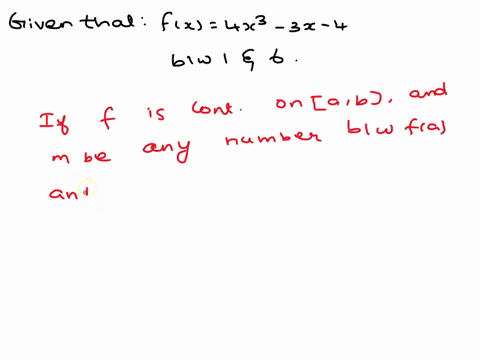 Given that: f(x) = 4x³ - 3x - 4
b/w 1 & 6.
If f is cont. on [a,b), and
m be any number b/w f(a)
and